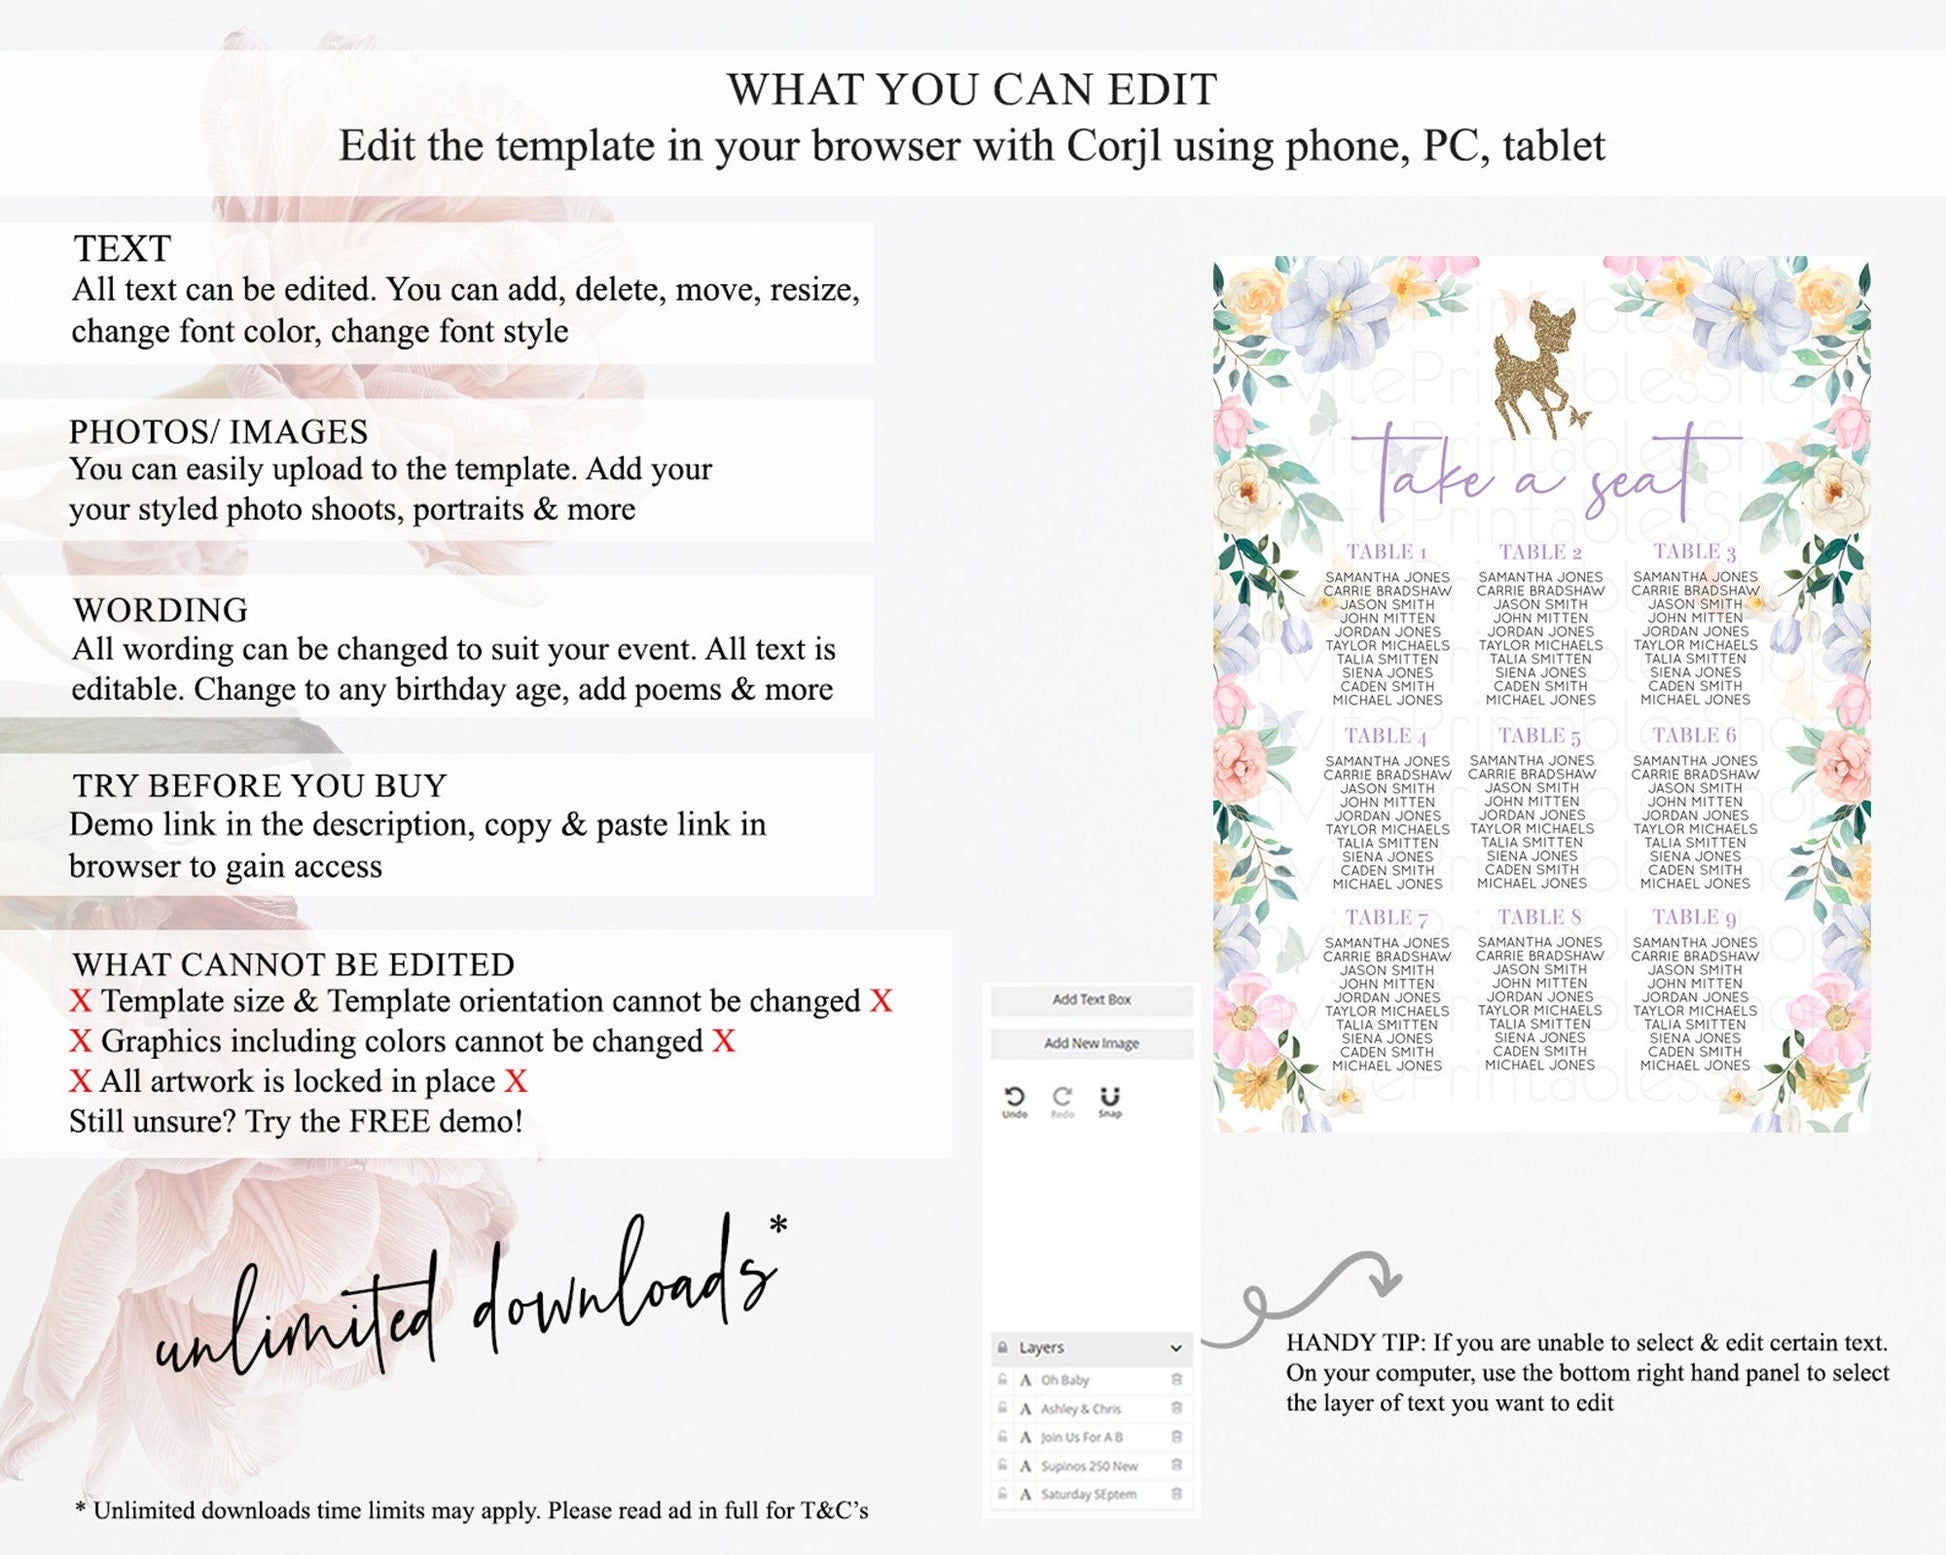 WHAT YOU CAN EDIT
Edit the template in your browser with Corjl using phone, PC, tablet
TEXT
All text can be edited. You can add, delete, move, resize,
change font color, change font style
PHOTOS/ IMAGES
You can easily upload to the template. Add your
your styled photo shoots, portraits & more
WORDING
All wording can be changed to suit your event. All text is
editable. Change to any birthday age, add poems & more
TRY BEFORE YOU BUY
Demo link in the description, copy & paste link in
browser to gain access
WHAT CANNOT BE EDITED
X Template size & Template orientation cannot be changed X
X Graphics including colors cannot be changed X
X All artwork is locked in place X
Still unsure? Try the FREE demo!
unlimited downloads*
* Unlimited downloads time limits may apply. Please read ad in full for T&C's
Add Text Box
Add New Image
Undo Redo Snap
Layers
A Oh Baby
A Ashley & Chris
A Join Us For A B
A Supinos 250 New
A Saturday SEptem
take a seat
TABLE 1
SAMANTHA JONES
CARRIE BRADSHAW
JASON SMITH
JOHN MITTEN
JORDAN JONES
TAYLOR MICHAELS
TALIA SMITTEN
SIENA JONES
CADEN SMITH
MICHAEL JONES
TABLE 2
SAMANTHA JONES
CARRIE BRADSHAW
JASON SMITH
JOHN MITTEN
JORDAN JONES
TAYLOR MICHAELS
TALIA SMITTEN
SIENA JONES
CADEN SMITH
MICHAEL JONES
TABLE 3
SAMANTHA JONES
CARRIE BRADSHAW
JASON SMITH
JOHN MITTEN
JORDAN JONES
TAYLOR MICHAELS
TALIA SMITTEN
SIENA JONES
CADEN SMITH
MICHAEL JONES
TABLE 4
SAMANTHA JONES
CARRIE BRADSHAW
JASON SMITH
JOHN MITTEN
JORDAN JONES
TAYLOR MICHAELS
TALIA SMITTEN
SIENA JONES
CADEN SMITH
MICHAEL JONES
TABLE 5
SAMANTHA JONES
CARRIE BRADSHAW
JASON SMITH
JOHN MITTEN
JORDAN JONES
TAYLOR MICHAELS
TALIA SMITTEN
SIENA JONES
CADEN SMITH
MICHAEL JONES
TABLE 6
SAMANTHA JONES
CARRIE BRADSHAW
JASON SMITH
JOHN MITTEN
JORDAN JONES
TAYLOR MICHAELS
TALIA SMITTEN
SIENA JONES
CADEN SMITH
MICHAEL JONES
TABLE 7
SAMANTHA JONES
CARRIE BRADSHAW
JASON SMITH
JOHN MITTEN
JORDAN JONES
TAYLOR MICHAELS
TALIA SMITTEN
SIENA JONES
CADEN SMITH
MICHAEL JONES
TABLE 8
SAMANTHA JONES
CARRIE BRADSHAW
JASON SMITH
JOHN MITTEN
JORDAN JONES
TAYLOR MICHAELS
TALIA SMITTEN
SIENA JONES
CADEN SMITH
MICHAEL JONES
TABLE 9
SAMANTHA JONES
CARRIE BRADSHAW
JASON SMITH
JOHN MITTEN
JORDAN JONES
TAYLOR MICHAELS
TALIA SMITTEN
SIENA JONES
CADEN SMITH
MICHAEL JONES
HANDY TIP: If you are unable to select & edit certain text.
On your computer, use the bottom right hand panel to select
the layer of text you want to edit